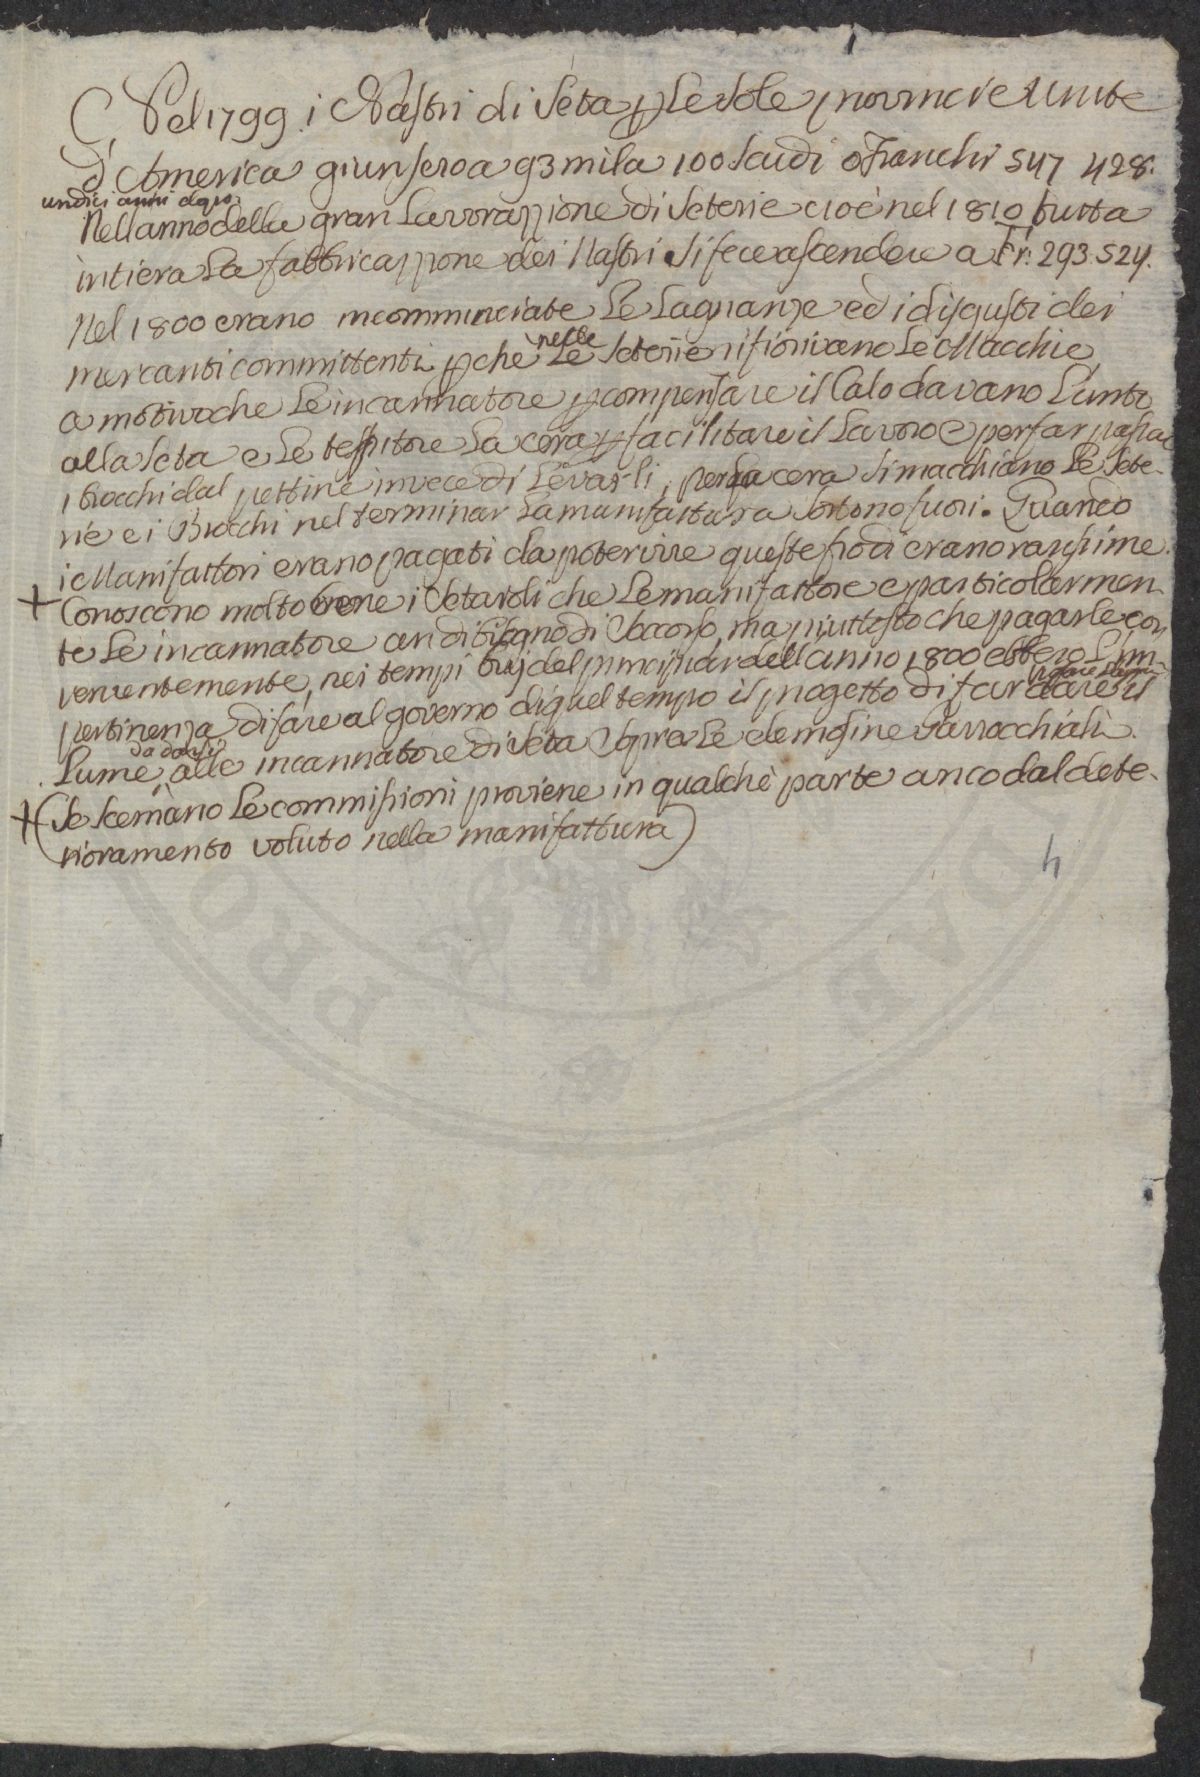 Nel 1799 i Nastri di Seta p le sole provincie Unite
d'America giunsero a 93 mila 100 scudi o Franchi 547 428.
undici anni dopo
Nell anno della gran Lavorazzione di Seterie cioè nel 1810 tutta
intiera la fabbricazzione dei Nastri si fece ascendere a Fr. 293.524.
Nel 1800 erano incomminciate le lagnanze ed i disgusti dei
nelle
mercanti committenti pche le Seterie rifiorivano le Macchie
a motivo che le incannatore p compensare il Calo davano l'unto
alla Seta e le tessitore la cera p facilitare il Lavoro e per far passar
i Brocchi dal pettine invece di levarli, per la cera si macchiano le Sete-
rie e i Brocchi nel terminar la manifattura sortono fuori. Quando
i Manifattori erano pagati da poter vivere queste frodi erano rarissime.
+ Conoscono molto bene i Setaroli che le manifattore e particolarmen-
te le incannatore an di bisogno di Soccorso, ma piuttosto che pagarle con
venientemente, nei tempi buj del principiar dell'anno 1800 ebbero l'im-
pertinenza di fare al governo di quel tempo il progetto di far dare il
da darsi
Lume, alle incannatore di Seta sopra le elemosine Parrocchiali.
+ (Se scemano le commissioni proviene in qualche parte anco dal dete-
rioramento voluto nella manifattura)
4
PRO